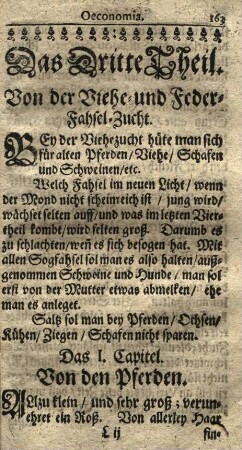 Oeconomia. 163
Das Dritte Theil.
Von der Viehe- und Feder-
Fahsel-Zucht.
BEy der Viehezucht hüte man sich
für alten Pferden / Viehe / Schafen
und Schweinen / etc.
Welch Fahsel im neuen Licht / wenn
der Mond nicht scheinreich ist / jung wird /
wächset selten auff / und was im letzten Vier-
theil kombt / wird selten groß. Darumb es
zu schlachten / weñ es sich besogen hat. Mit
allen Sogfahsel sol man es also halten / auß-
genommen Schweine und Hunde / man sol
erst von der Mutter etwas abmelken / ehe
man es anleget.
Saltz sol man bey Pferden / Ochsen /
Kühen / Ziegen / Schafen nicht sparen.
Das I. Capitel.
Von den Pferden.
ALlzu klein / und sehr groß ; verun-
ehret ein Roß. Von allerley Haar
L ij fin-